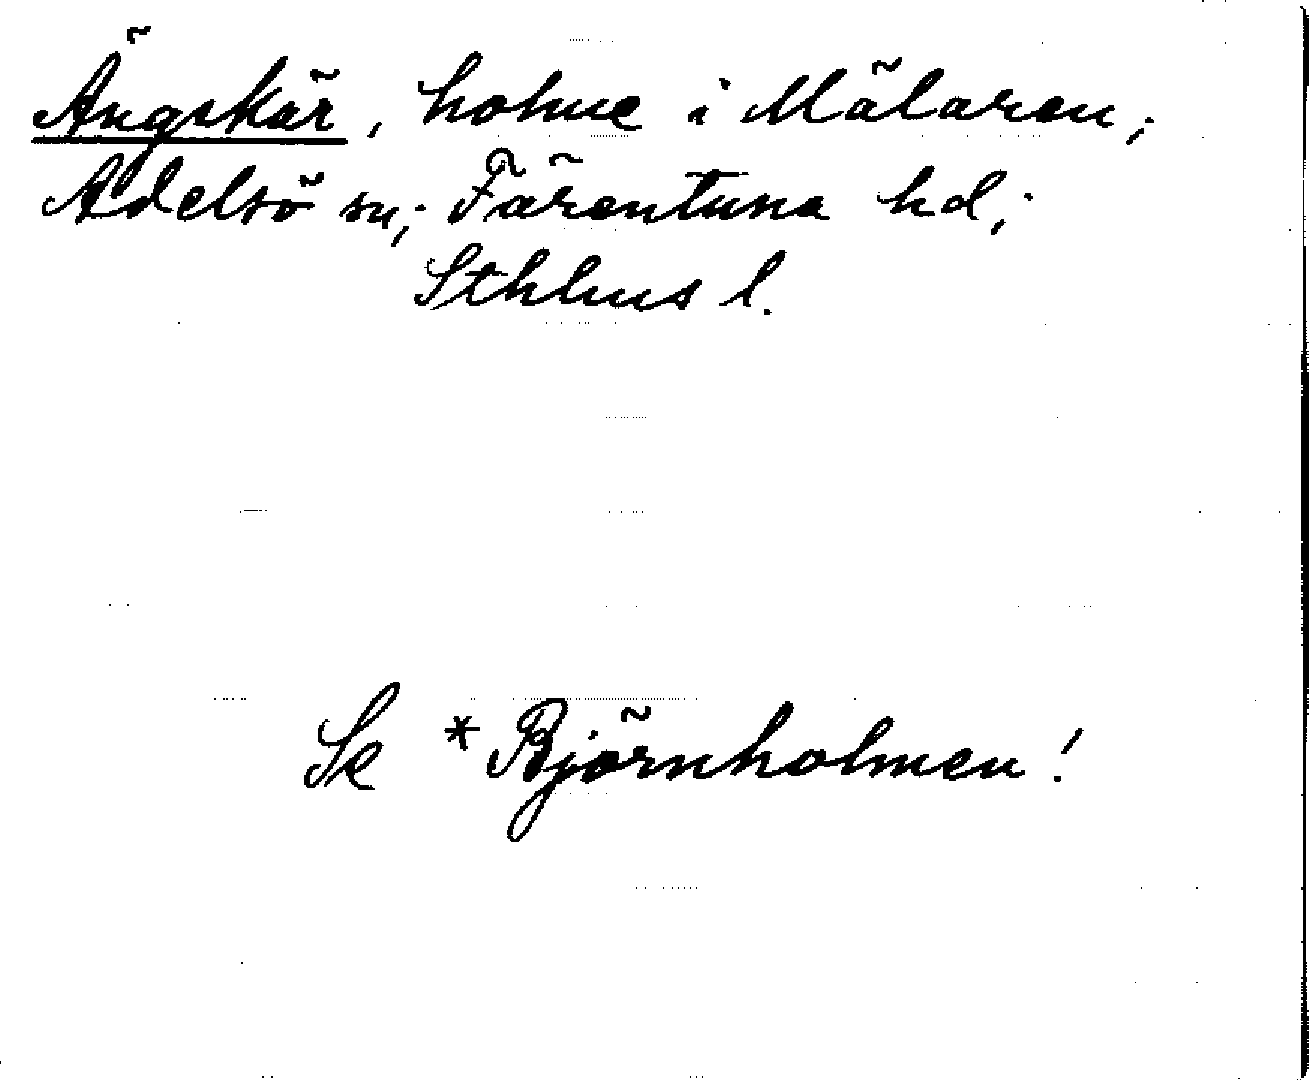 Ängskär, holme i Mälaren;
Adelsö sn; Färentuna hd;
Sthlms l.
Se *Björnholmen!